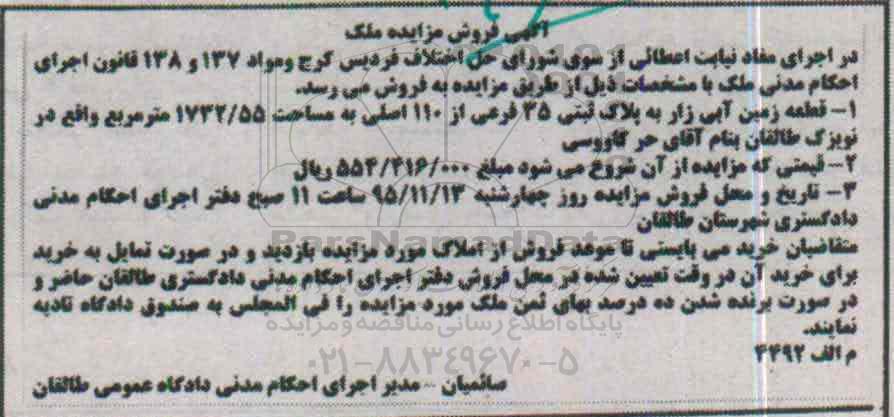 آگهی فروش مزایده ملک
در اجرای مفاد نیابت اعطائی از سوی شورای حل اختلاف فردیس کرج ومواد ۱۳۷ و ۱۳۸ قانون اجرای
احکام مدنی ملک با مشخصات ذیل از طریق مزایده به فروش می رسد.
۱- قطعه زمین آبی زار به پلاک ثبتی ۳۵ فرعی از ۱۱۰ اصلی به مساحت ۱۷۳۲/۵۵ مترمربع واقع در
نویزک طالقان بنام آقای حر کاووسی
۲- قیمتی که مزایده از آن شروع می شود مبلغ ۵۵۴/۴۱۶/۰۰۰ ریال
۳- تاریخ و محل فروش مزایده روز چهارشنبه ۹۵/۱۱/۱۳ ساعت ۱۱ صبح دفتر اجرای احکام مدنی
دادگستری شهرستان طالقان
ParsNamadData
متقاضیان خرید می بایستی تا موعد فروش از املاک مورد مزایده بازدید و در صورت تمایل به خرید
برای خرید آن در وقت تعیین شده در محل فروش دفتر اجرای احکام مدنی دادگستری طالقان حاضر و
در صورت برنده شدن ده درصد بهای ثمن ملک مورد مزایده را فی المجلس به صندوق دادگاه تادیه
پایگاه اطلاع رسانی مناقصه و مزایده
نمایند.
م الف ۴۴۹۲
۰۲۱-۸۸۳۴۹۶۷۰-۵
صائمیان - مدیر اجرای احکام مدنی دادگاه عمومی طالقان